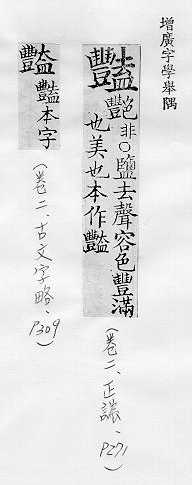 增廣字學舉隅
豔艷非○鹽去聲容色豐滿
也美也本作豓
(卷二、正譌、P271)
豓豔本字
(卷二、古文字略、P309)